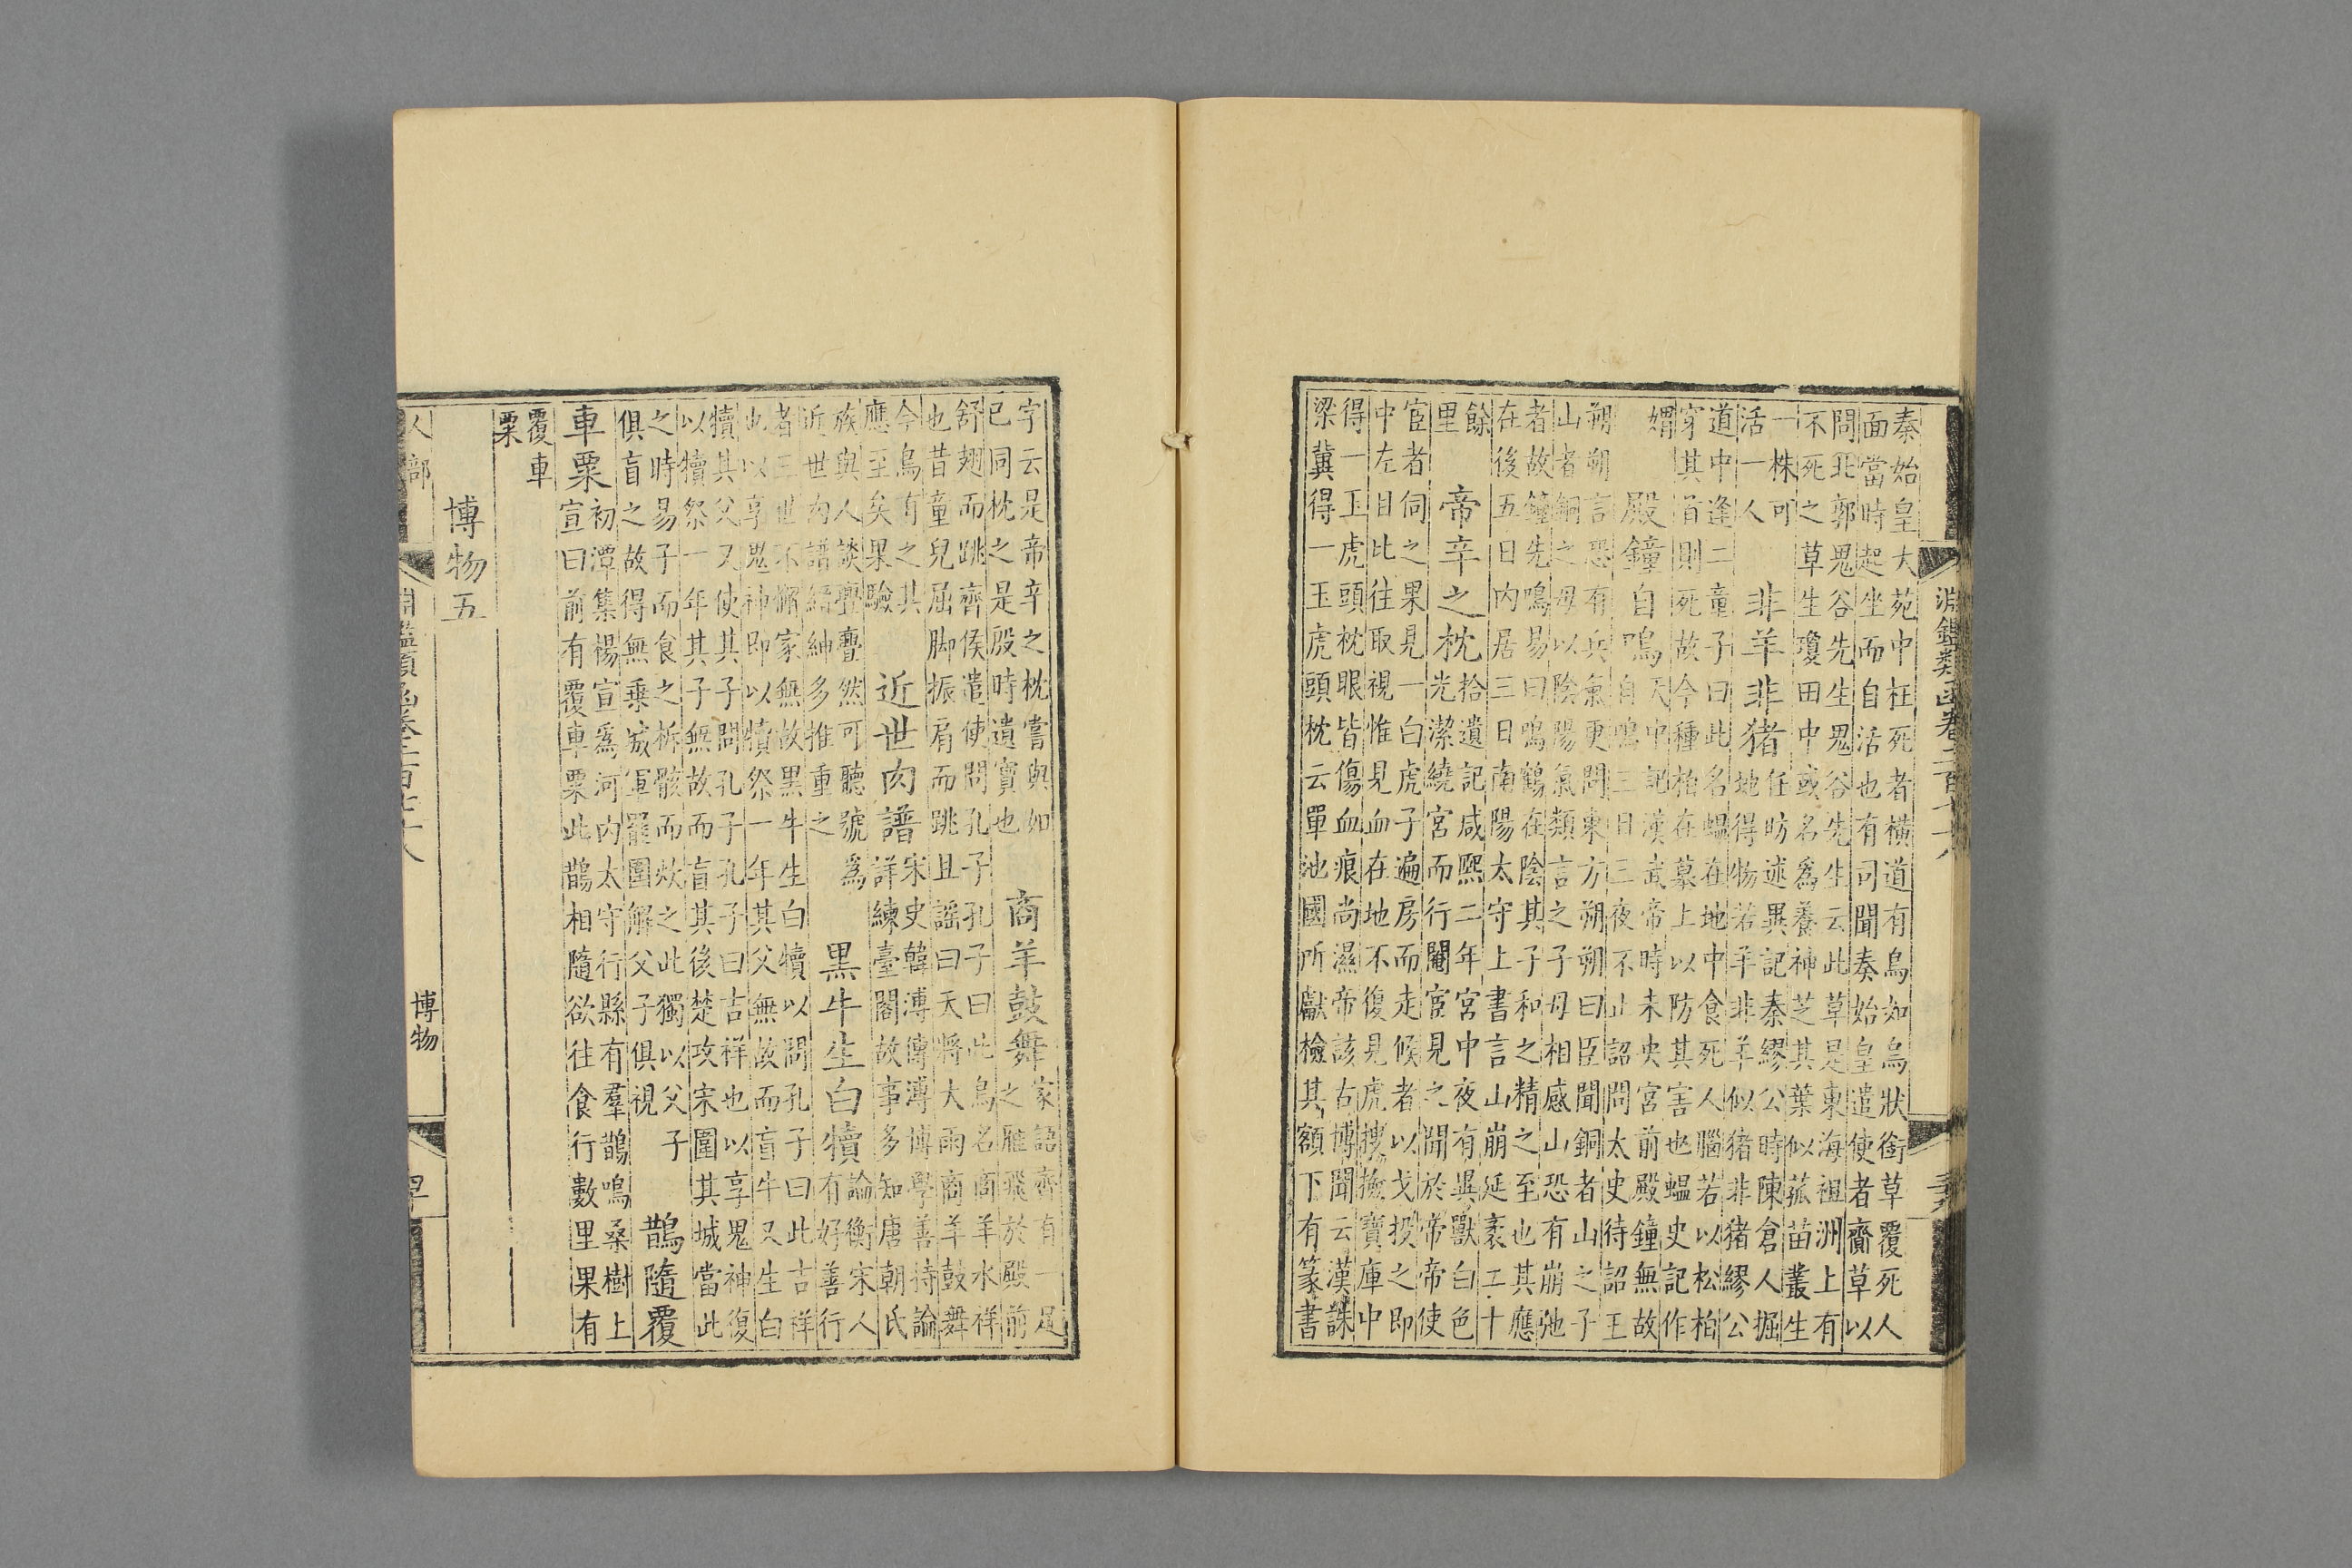 淵鑑類函卷三百二十八
秦始皇大苑中枉死者橫道有烏如烏狀銜草覆死人
面當時起坐而自活也有司聞奏始皇遣使者齎草以
問北郭鬼谷先生鬼谷先生云此草是東海祖洲上有
不死之草生瓊田中或名為養神芝其葉似菰苗叢生
一株可
活一人
非羊非猪
任昉述異記秦繆公時陳倉人掘
地得物若羊非羊似猪非猪繆公
道中逢二童子曰此名蝹在地中食死人腦若以松柏
穿其首則死故今種柏在墓上以防其害也蝹史記作
媦
殿鐘自鳴
天中記漢武帝時未央宮前殿鐘無故
自鳴三日三夜不止詔問太史待詔王
朔朔言恐有兵氣更問東方朔朔曰臣聞銅者山之子
山者銅之母以陰陽氣類言之子母相感山恐有崩弛
者故鐘先鳴易曰鳴鶴在陰其子和之精之至也其應
在後五日內居三日南陽太守上書言山崩延袤二十
餘
里
帝辛之枕
拾遺記咸熙二年宮中夜有異獸白色
光潔繞宮而行閹宦見之聞於帝帝使
宦者伺之果見一白虎子遍房而走候者以戈投之即
中左目比往取視惟見血在地不復見虎搜撿寶庫中
得一玉虎頭枕眼皆傷血痕尚濕帝該古博聞云漢誅
梁冀得一玉虎頭枕云單池國所獻檢其額下有篆書
字云是帝辛之枕嘗與如
已同枕之是殷時遺寶也
商羊鼓舞
家語齊有一足
之雁飛於殿前
舒翅而跳齊侯遣使問孔子孔子曰此鳥名商羊水祥
也昔童兒屈脚振肩而跳且謠曰天將大雨商羊鼓舞
今烏有之其
應至矣果驗
近世肉譜
宋史韓溥傳溥博學善持論
詳練臺閣故事多知唐朝氏
族與人談亹亹然可聽號為
近世肉譜縉紳多推重之
黑牛生白犢
論衡宋人
有好善行
者三世不懈家無故黑牛生白犢以問孔子曰此吉祥
此以享鬼神即以犢祭一年其父無故而盲牛又生白
犢其父又使其子問孔子孔子曰吉祥也以享鬼神復
以犢祭一年其子無故而盲其後楚攻宋圍其城當此
之時易子而食之柝骸而炊之此獨以父子
俱盲之故得無乘城軍罷圍解父子俱視
鵲隨覆
車粟
初潭集楊宣爲河內太守行縣有羣鵲鳴桑樹上
宣曰前有覆車粟此鵲相隨欲往食行數里果有
覆車
粟
博物五
人部
博物